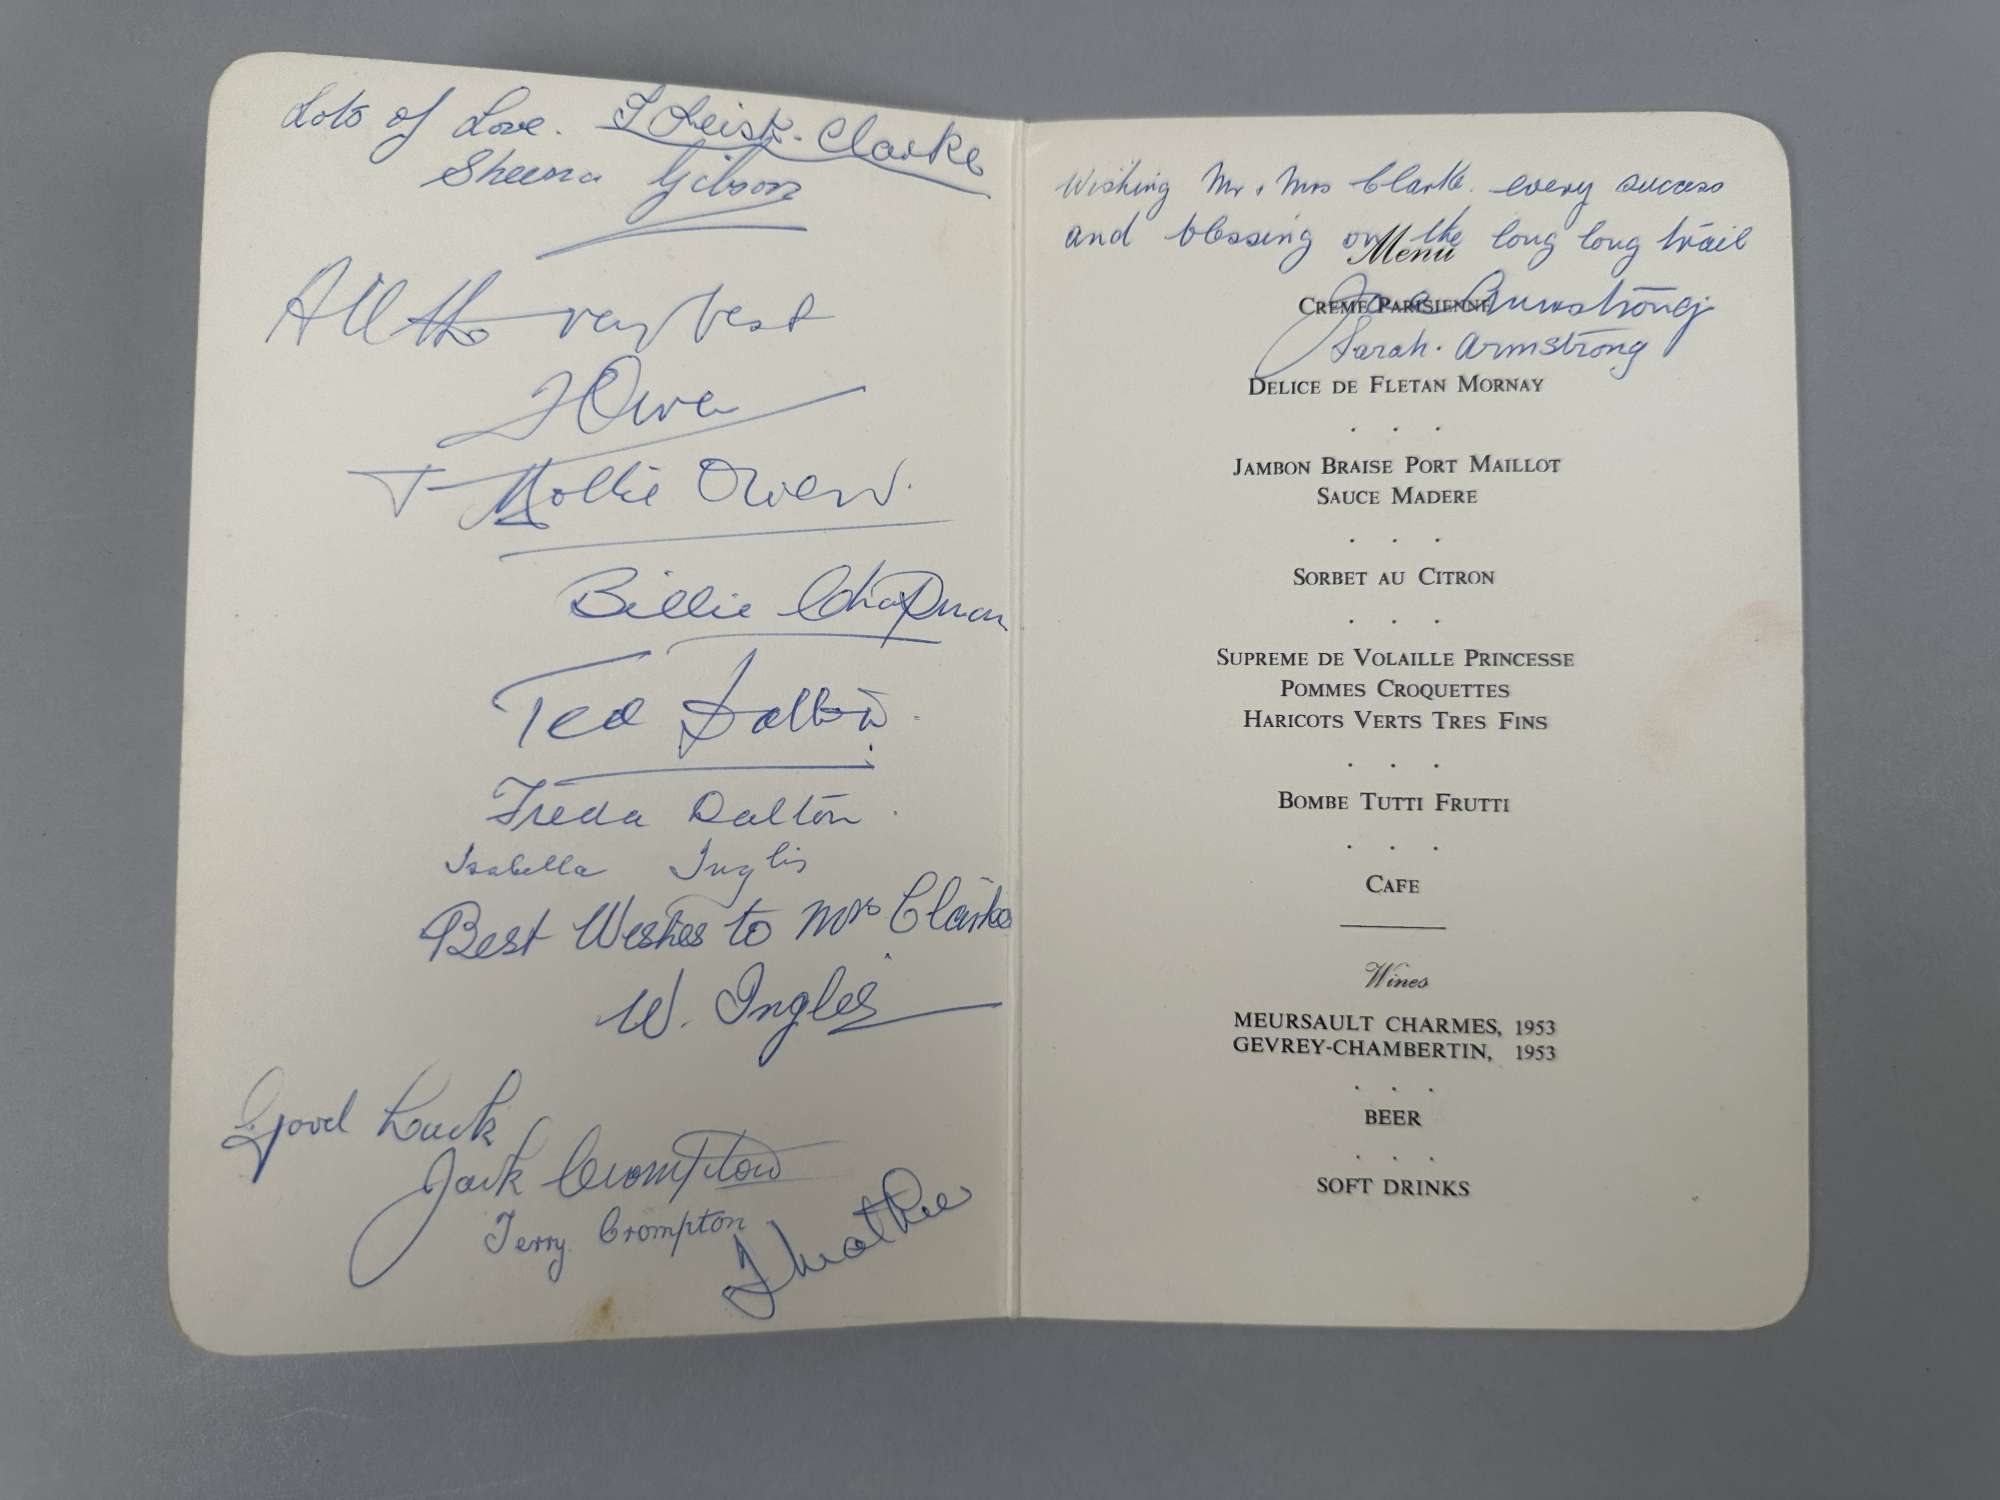 Lots of Love. Leisk-Clarke
Sheena Gibson
All the very best
J Owen
+ Mollie Owen.
Billie Chapman
Ted Dalton.
Freda Dalton.
Isabella Inglis
Best Wishes to Mrs Clarke
W. Inglis
Good Luck
Jack Crompton
Terry Crompton
Wishing Mr & Mrs Clarke. every success
and blessing on the long long trail
Menu
CREME PARISIENNE
Armstrong
Sarah. Armstrong
DELICE DE FLETAN MORNAY
. . .
JAMBON BRAISE PORT MAILLOT
SAUCE MADERE
. . .
SORBET AU CITRON
. . .
SUPREME DE VOLAILLE PRINCESSE
POMMES CROQUETTES
HARICOTS VERTS TRES FINS
. . .
BOMBE TUTTI FRUTTI
. . .
CAFE
Wines
MEURSAULT CHARMES, 1953
GEVREY-CHAMBERTIN, 1953
. . .
BEER
. . .
SOFT DRINKS